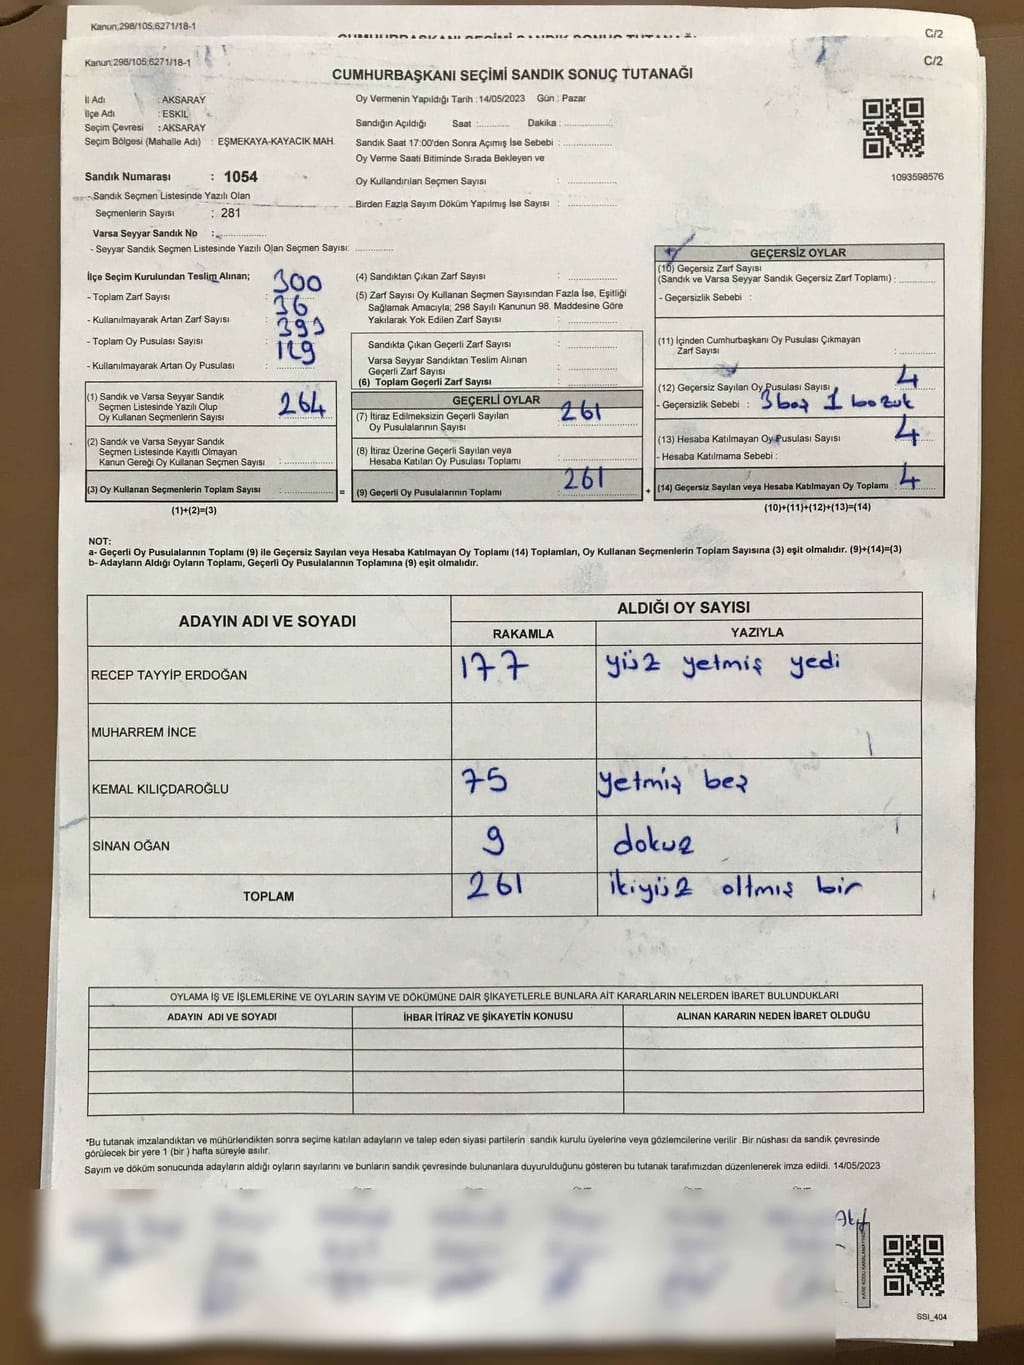 Kanun;298/105;6271/18-1
C/2
Kanun;298/105;6271/18-1
C/2
CUMHURBAŞKANI SEÇİMİ SANDIK SONUÇ TUTANAĞI
İl Adı : AKSARAY
İlçe Adı : ESKİL
Seçim Çevresi : AKSARAY
Seçim Bölgesi (Mahalle Adı) : EŞMEKAYA-KAYACIK MAH.
Oy Vermenin Yapıldığı Tarih : 14/05/2023 Gün : Pazar
Sandığın Açıldığı Saat :.......... Dakika :...............
Sandık Saat 17:00'den Sonra Açımış İse Sebebi :...............
Oy Verme Saati Bitiminde Sırada Bekleyen ve
Oy Kullandırılan Seçmen Sayısı :...............
Birden Fazla Sayım Döküm Yapılmış İse Sayısı :...............
1093598576
Sandık Numarası : 1054
- Sandık Seçmen Listesinde Yazılı Olan
Seçmenlerin Sayısı : 281
Varsa Seyyar Sandık No :...............
- Seyyar Sandık Seçmen Listesinde Yazılı Olan Seçmen Sayısı: ............
İlçe Seçim Kurulundan Teslim Alınan;
- Toplam Zarf Sayısı : 300
- Kullanılmayarak Artan Zarf Sayısı : 36
- Toplam Oy Pusulası Sayısı : 393
- Kullanılmayarak Artan Oy Pusulası : 129
(1) Sandık ve Varsa Seyyar Sandık
Seçmen Listesinde Yazılı Olup
Oy Kullanan Seçmenlerin Sayısı : 264
(2) Sandık ve Varsa Seyyar Sandık
Seçmen Listesinde Kayıtlı Olmayan
Kanun Gereği Oy Kullanan Seçmen Sayısı :...............
(3) Oy Kullanan Seçmenlerin Toplam Sayısı :............... =
(1)+(2)=(3)
(4) Sandıktan Çıkan Zarf Sayısı :...............
(5) Zarf Sayısı Oy Kullanan Seçmen Sayısından Fazla İse, Eşitliği
Sağlamak Amacıyla; 298 Sayılı Kanunun 98. Maddesine Göre
Yakılarak Yok Edilen Zarf Sayısı :...............
Sandıkta Çıkan Geçerli Zarf Sayısı :...............
Varsa Seyyar Sandıktan Teslim Alınan
Geçerli Zarf Sayısı :...............
(6) Toplam Geçerli Zarf Sayısı :...............
GEÇERLİ OYLAR
(7) İtiraz Edilmeksizin Geçerli Sayılan
Oy Pusulalarının Sayısı : 261
(8) İtiraz Üzerine Geçerli Sayılan veya
Hesaba Katılan Oy Pusulası Toplamı :...............
(9) Geçerli Oy Pusulalarının Toplamı : 261 +
GEÇERSİZ OYLAR
(10) Geçersiz Zarf Sayısı
(Sandık ve Varsa Seyyar Sandık Geçersiz Zarf Toplamı) :..........
- Geçersizlik Sebebi :
(11) İçinden Cumhurbaşkanı Oy Pusulası Çıkmayan
Zarf Sayısı :..........
(12) Geçersiz Sayılan Oy Pusulası Sayısı : 4
- Geçersizlik Sebebi : 3 boş 1 bozuk
(13) Hesaba Katılmayan Oy Pusulası Sayısı : 4
- Hesaba Katılmama Sebebi :
(14) Geçersiz Sayılan veya Hesaba Katılmayan Oy Toplamı : 4
(10)+(11)+(12)+(13)=(14)
NOT:
a- Geçerli Oy Pusulalarının Toplamı (9) ile Geçersiz Sayılan veya Hesaba Katılmayan Oy Toplamı (14) Toplamları, Oy Kullanan Seçmenlerin Toplam Sayısına (3) eşit olmalıdır. (9)+(14)=(3)
b- Adayların Aldığı Oyların Toplamı, Geçerli Oy Pusulalarının Toplamına (9) eşit olmalıdır.
ADAYIN ADI VE SOYADI
ALDIĞI OY SAYISI
RAKAMLA YAZIYLA
RECEP TAYYİP ERDOĞAN 177 yüz yetmiş yedi
MUHARREM İNCE
KEMAL KILIÇDAROĞLU 75 yetmiş beş
SİNAN OĞAN 9 dokuz
TOPLAM 261 ikiyüz altmış bir
OYLAMA İŞ VE İŞLEMLERİNE VE OYLARIN SAYIM VE DÖKÜMÜNE DAİR ŞİKAYETLERLE BUNLARA AİT KARARLARIN NELERDEN İBARET BULUNDUKLARI
ADAYIN ADI VE SOYADI İHBAR İTİRAZ VE ŞİKAYETİN KONUSU ALINAN KARARIN NEDEN İBARET OLDUĞU
*Bu tutanak imzalandıktan ve mühürlendikten sonra seçime katılan adayların ve talep eden siyasi partilerin sandık kurulu üyelerine veya gözlemcilerine verilir .Bir nüshası da sandık çevresinde
görülecek bir yere 1 (bir ) hafta süreyle asılır.
Sayım ve döküm sonucunda adayların aldığı oyların sayılarını ve bunların sandık çevresinde bulunanlara duyurulduğunu gösteren bu tutanak tarafımızdan düzenlenerek imza edildi. 14/05/2023
SSI_404